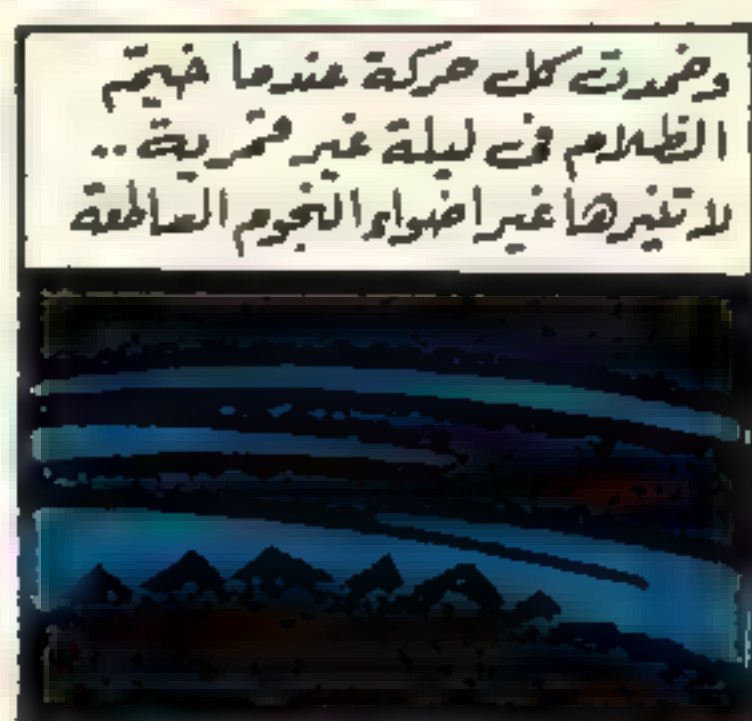 وخمدت كل حركة عندما خيّم
الظلام فى ليلة غير قمرية ..
لا تنيرها غير اضواء النجوم الساطعة